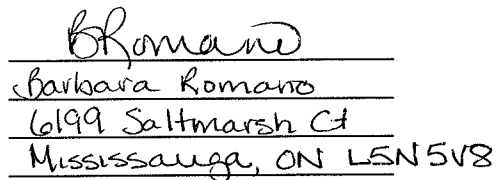 BRomano
Barbara Romano
6199 Saltmarsh Ct
Mississauga, ON L5N 5V8